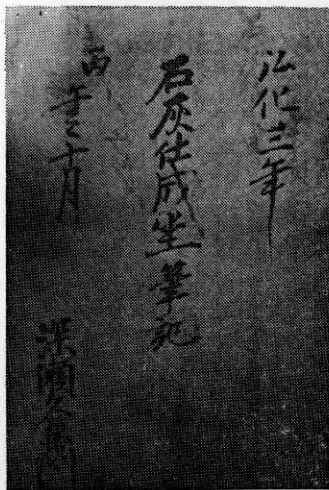 弘化三年
石灰仕成坐筆記
丙午十月
深瀬